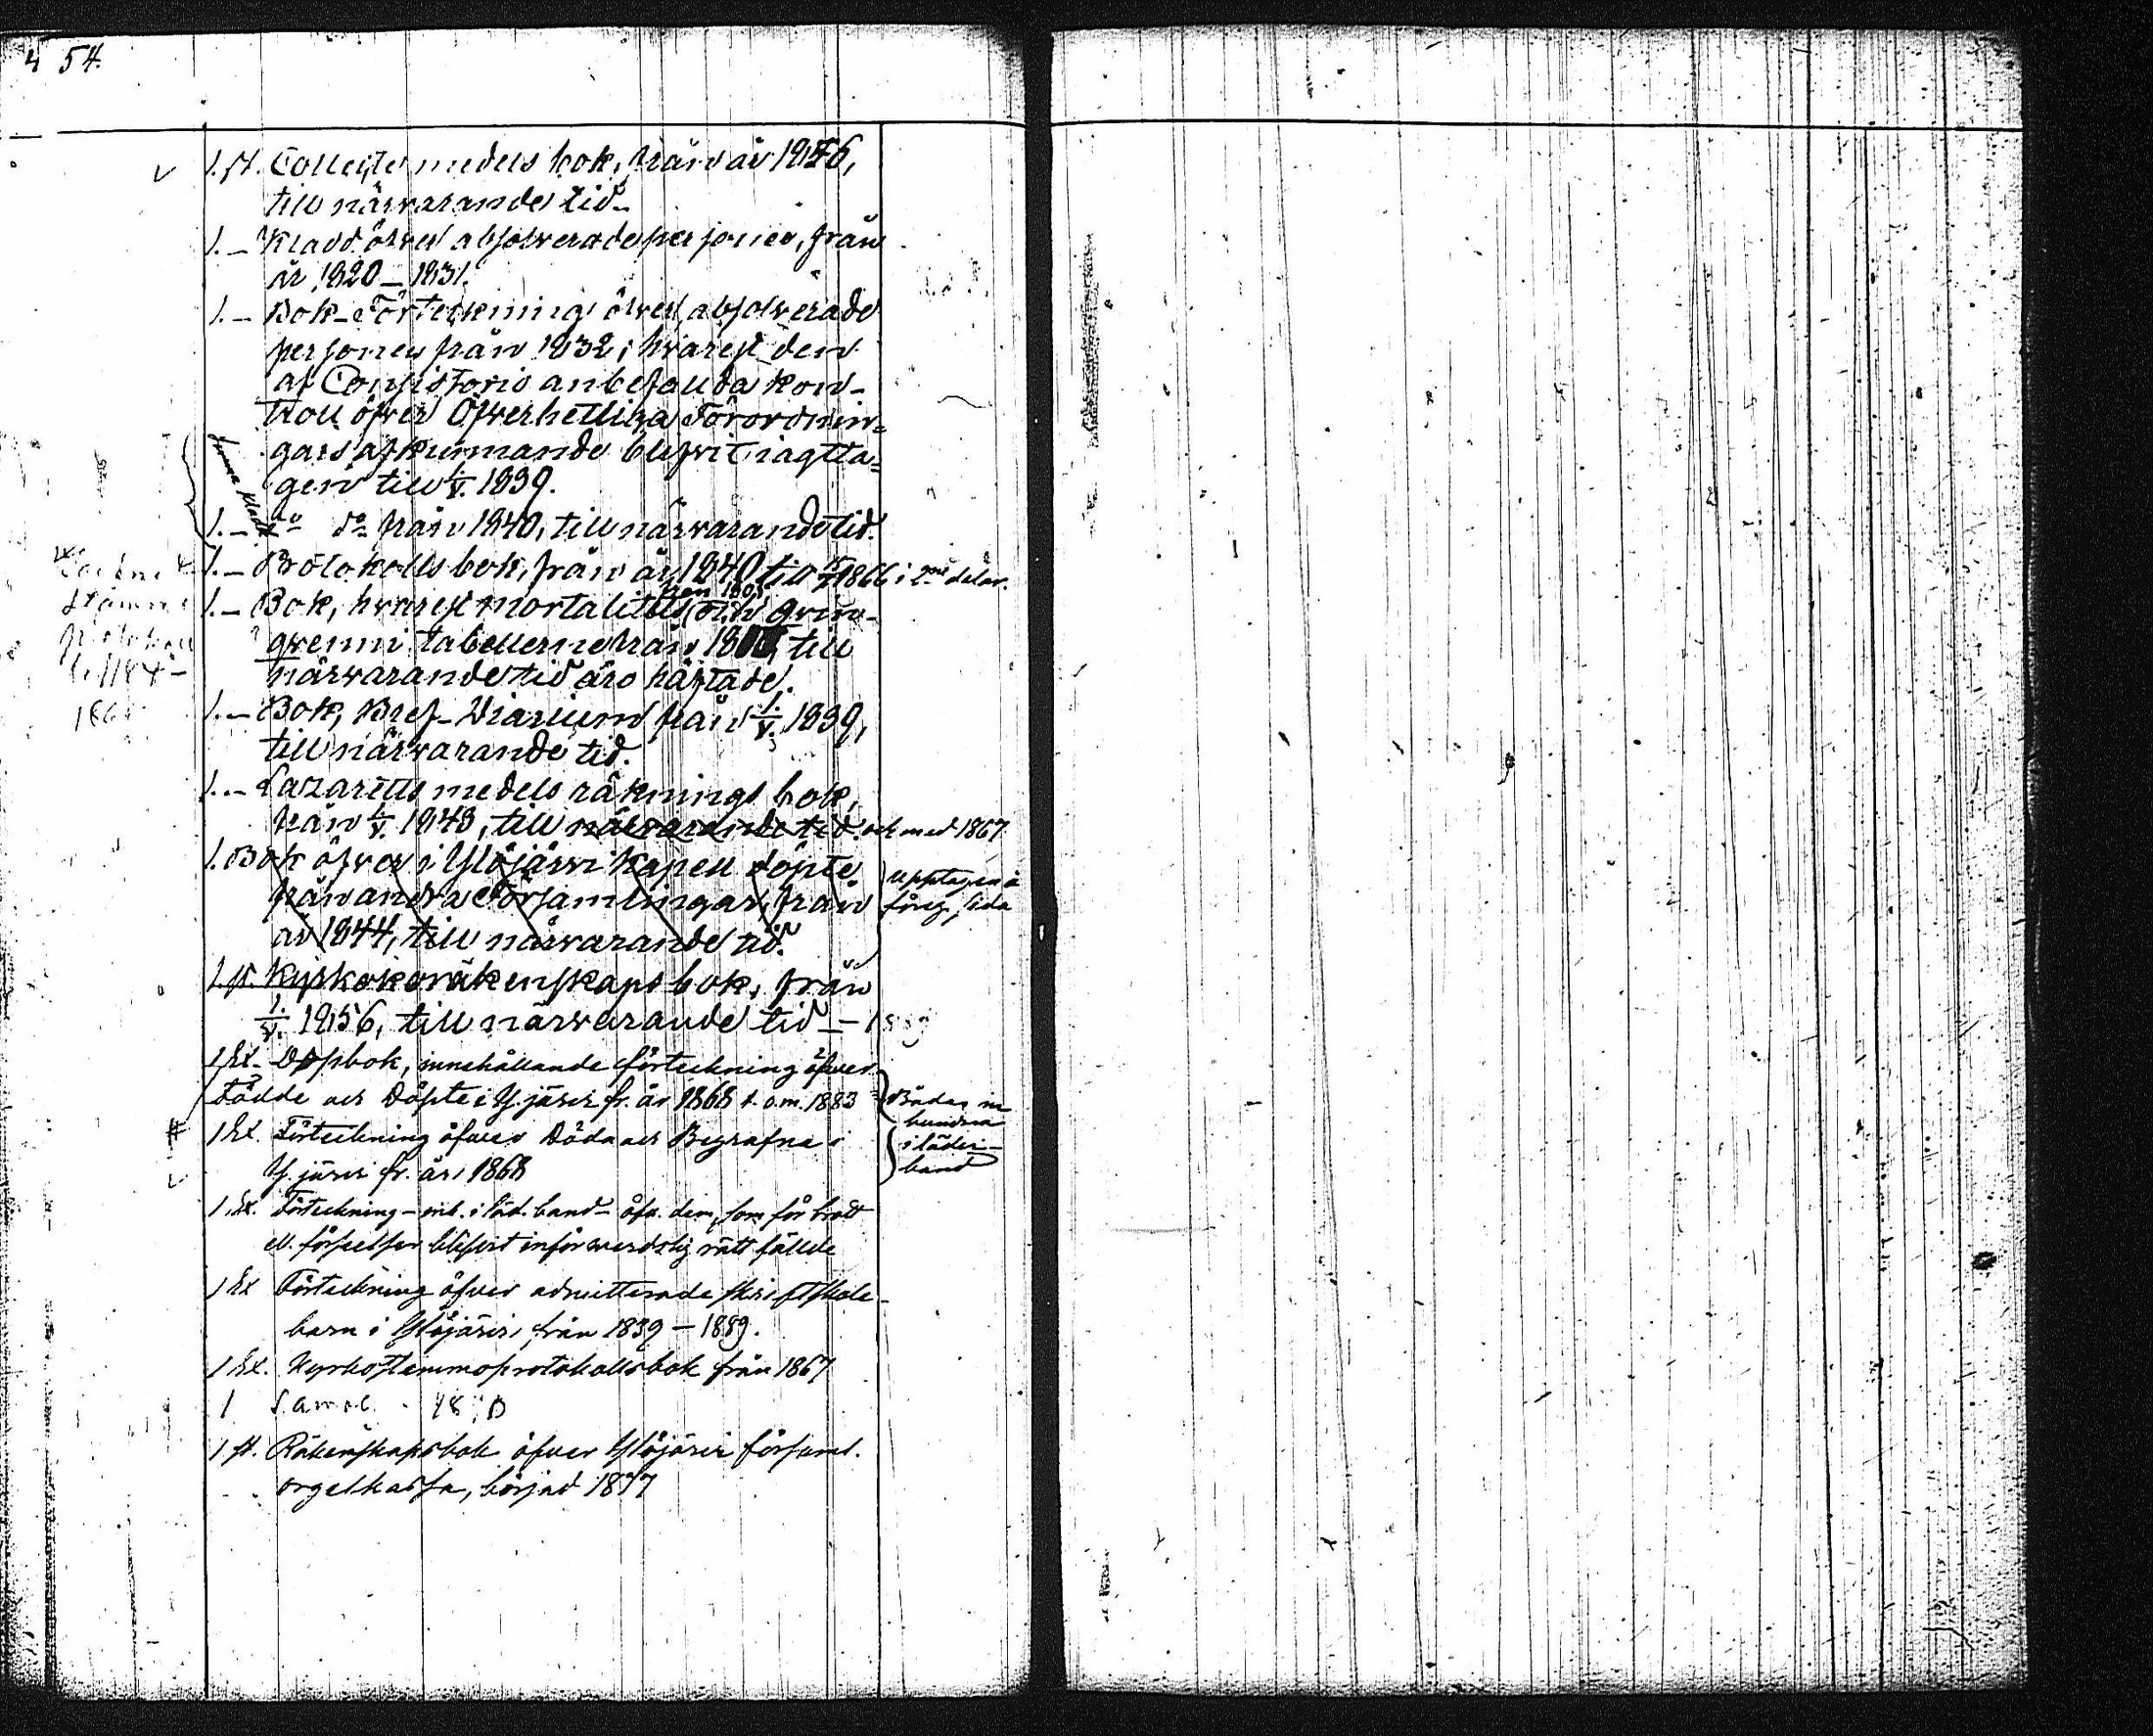 54.
1. st. Collecte medels bok, från år 1846,
till närvarande tid.
1. – Kladd öfver absolverade personer, från
år 1820 – 1831.
1. – Bok – Förteckning öfver absolverade
personer från 1832; hvarest den
af Consistorio anbefallda kon-
troll öfver Öfverhetliga Förordnin-
gars afkunnande blifvit iagtta-
gen till 1/V. 1839.
1. – do från 1840, till närvarande tid.
1. – Protokolls bok, från år 1840 till 1866 i 2ne delar.
1. – Bok, hvarest mortalitets och qvin-
qvenni tabellerne från 18 till
närvarande tid äro häftade.
1. – Bok, Bref – Diarium från 1/V. 1839,
till närvarande tid.
1. – Lazaretts medels räknings bok,
från 1/V. 1843, till närvarande tid. och med 1867
1. Bok öfver i Ylöjärvi Kapell döpte
från andra Församlingar, från
år 1844, till närvarande tid.
upptagen å
föreg. sida
1. st. Kyrkokoräkenskaps bok, från
1/V. 1856, till närvarande tid –
1 Ex. Dopbok, innehållande förteckning öfver
Födde och Döpte i Y.järvi fr. år 1868 t. o. m. 1883
Bådas in
bundna
i läder-
band
1 Ex. Förteckning öfver Döda och Begrafna i
Y.järvi fr. år 1868
1 Ex. Förteckning – inb. i läd. band – öfv. dem, som för brott
ell. förseelser blifvit inför werdslig rätt fällde
1 Ex Förteckning öfver admitterade skriftskole-
barn i Ylöjärvi, från 1839 – 1889.
1 Ex. Kyrkostemmoprotokollsbok från 1867
1
1 st. Räkenskapsbok öfver Ylöjärvi församl.
orgelkassa, börjad 1877